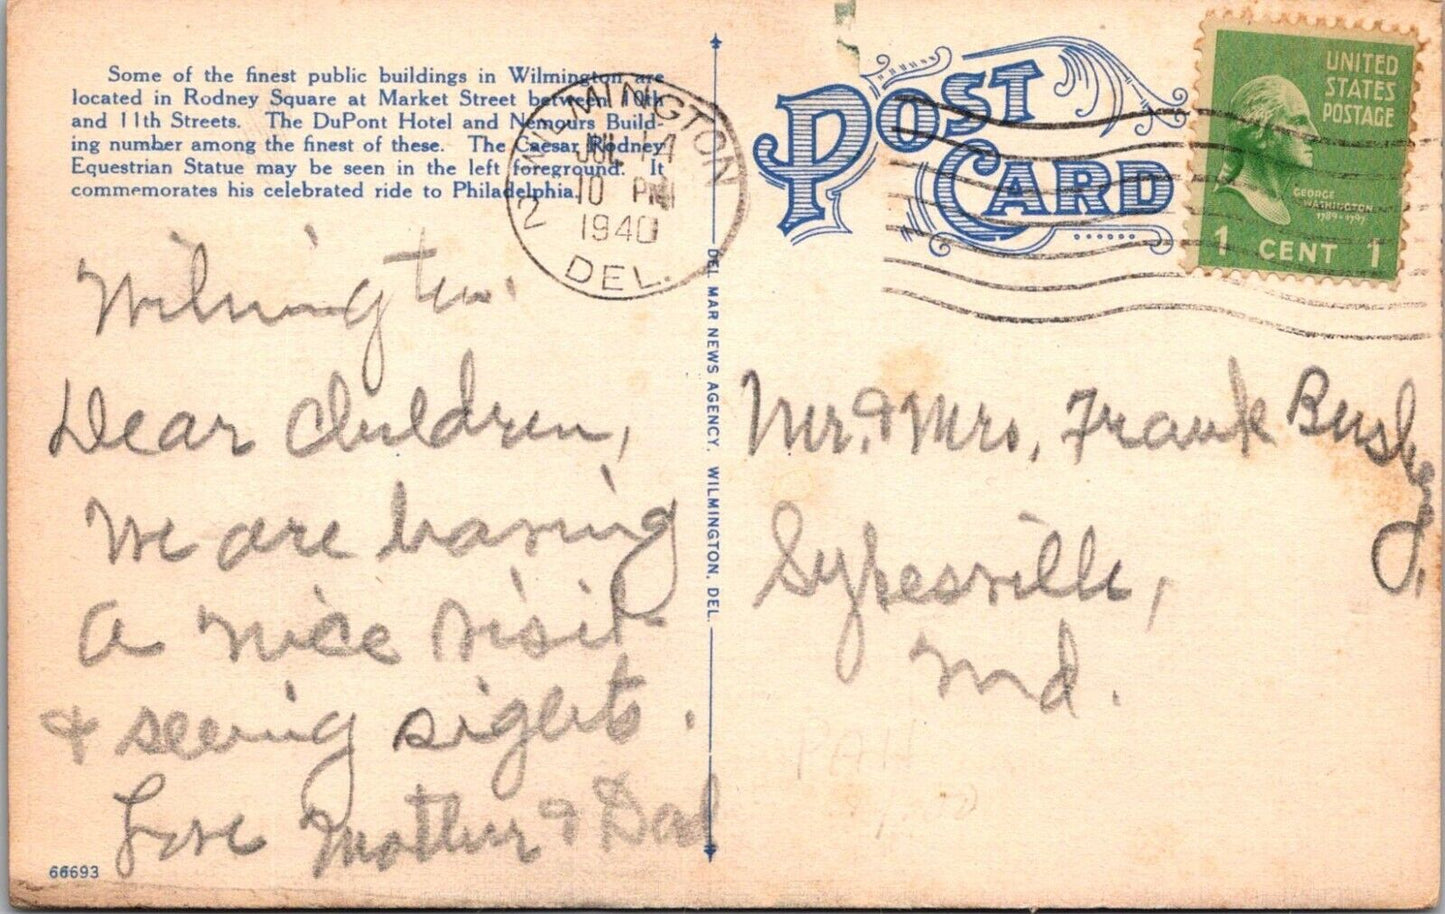 Some of the finest public buildings in Wilmington are
located in Rodney Square at Market Street between 10th
and 11th Streets. The DuPont Hotel and Nemours Build-
ing number among the finest of these. The Caesar Rodney
Equestrian Statue may be seen in the left foreground. It
commemorates his celebrated ride to Philadelphia.
Wilmington.
Dear Children,
We are having
a nice visit
& seeing sights.
Love Mother & Dad
66693
DEL MAR NEWS AGENCY. WILMINGTON, DEL.
POST
CARD
WILMINGTON
JUL
10 PM
1940
DEL.
UNITED
STATES
POSTAGE
GEORGE
WASHINGTON
1789-1797
1 CENT 1
Mr. & Mrs. Frank Bushey,
Sykesville,
Md.
PAH